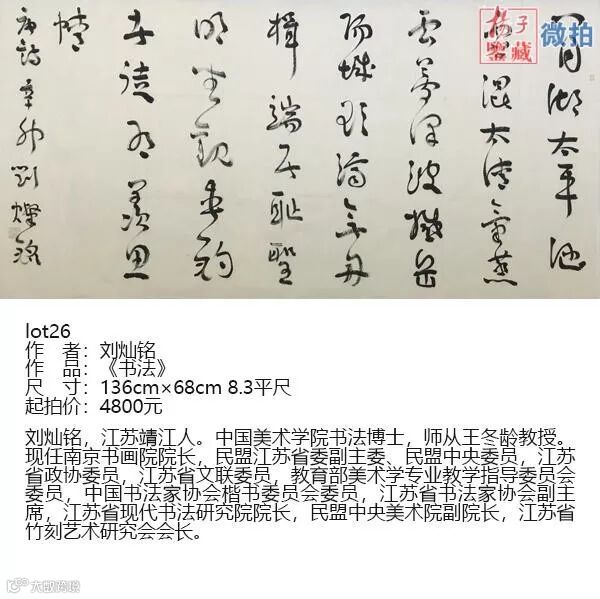 微拍
八月湖水平涵
虚混太清氣蒸
雲夢澤波撼岳
陽城欲濟無舟
楫端居耻聖
明坐觀垂釣
者徒有羡魚
情
唐詩辛卯劉燦銘
lot26
作 者：刘灿铭
作 品：《书法》
尺 寸：136cm×68cm 8.3平尺
起拍价：4800元
刘灿铭，江苏靖江人。中国美术学院书法博士，师从王冬龄教授。
现任南京书画院院长，民盟江苏省委副主委、民盟中央委员，江苏
省政协委员，江苏省文联委员，教育部美术学专业教学指导委员会
委员，中国书法家协会楷书委员会委员，江苏省书法家协会副主
席，江苏省现代书法研究院院长，民盟中央美术院副院长，江苏省
竹刻艺术研究会会长。
大数跨境